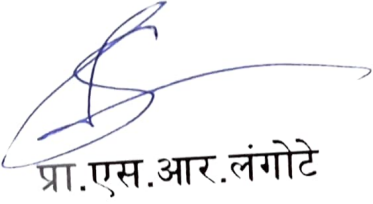 प्रा.एस.आर.लंगोटे